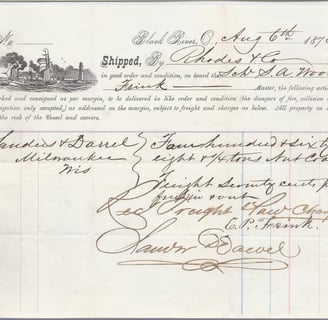 No.
Black River, O., Aug 6th 187
Shipped, By Rhodes & Co
in good order and condition, on board the Sch S. A. Woo
Frink Master, the following artic
rked and consigned as per margin, to be delivered in like order and condition (the dangers of fire, collision
igation only excepted,) as addressed on the margin, subject to freight and charges as below. All property on
the risk of the Vessel and owners.
Four hundred & sixty
Milwaukee
eight & tons Nut C
Wis
Freight Seventy cents
free in & out
Rec Freight
C. P. Frink